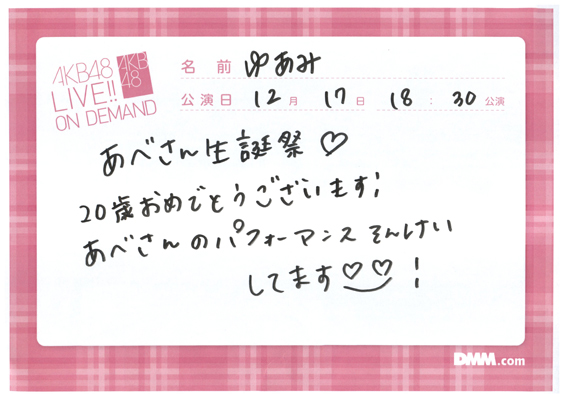 AKB48
LIVE!!
ON DEMAND
AKB
48
名前 ゆあみ
公演日 12月 17日 18:30公演
あべさん生誕祭♡
20歳おめでとうございます!
あべさんのパフォーマンスそんけい
してます♡♡!
DMM.com